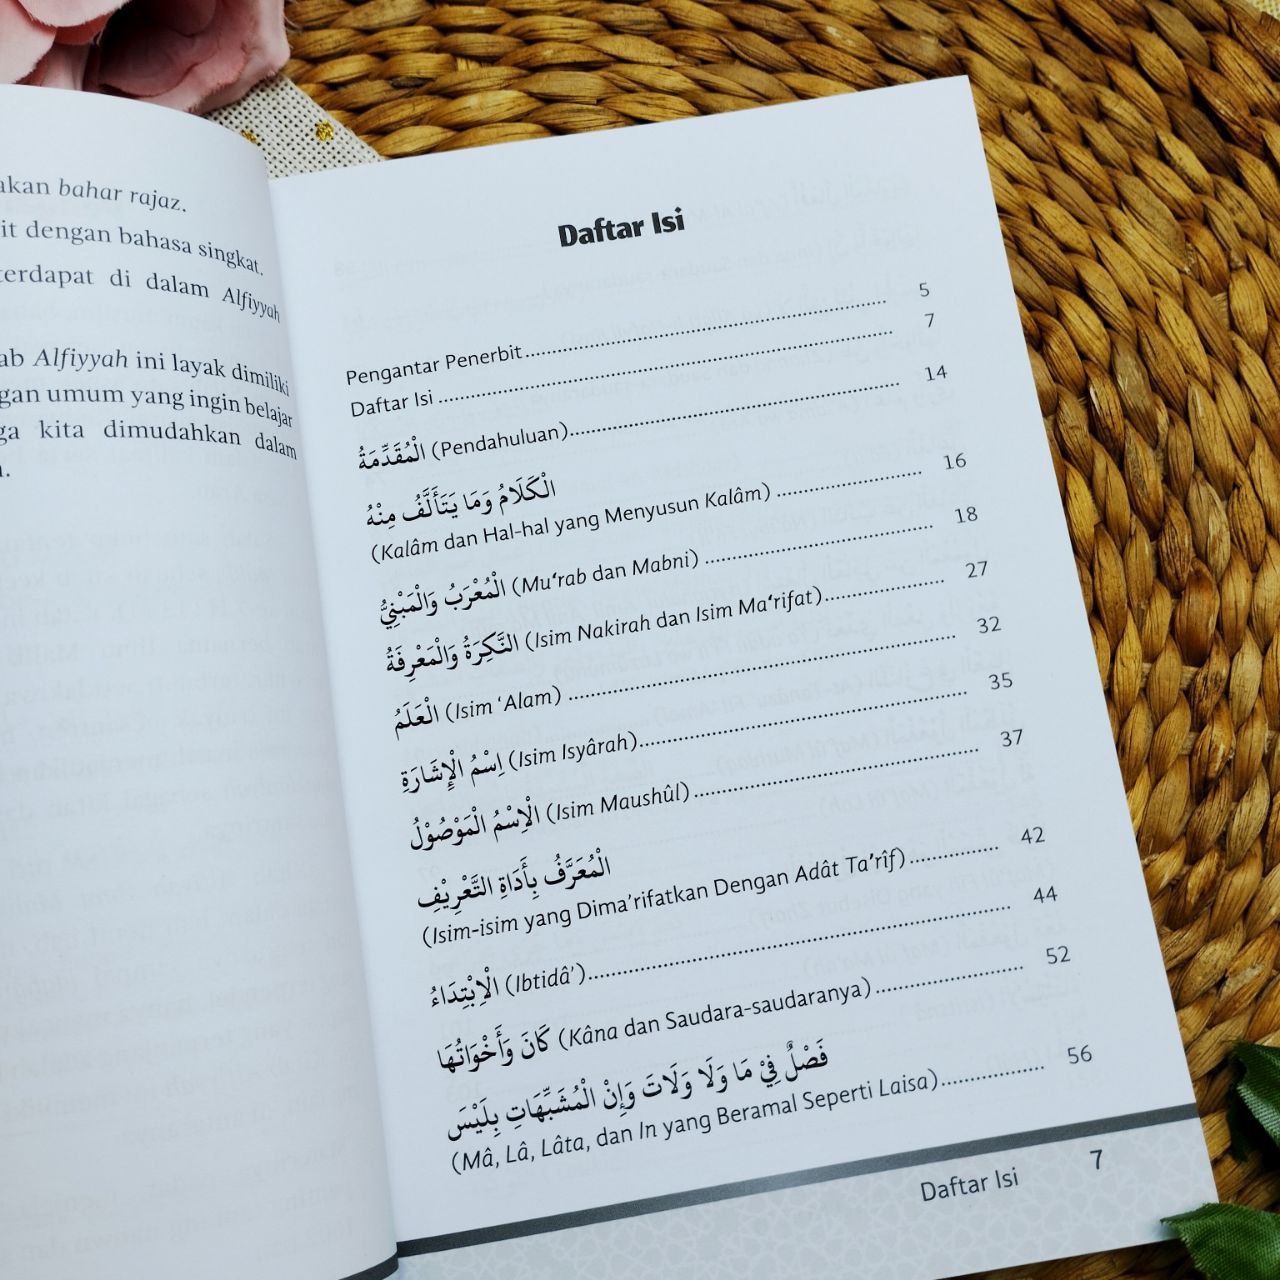 akan bahar rajaz.
it dengan bahasa singkat.
terdapat di dalam Alfiyyah
ab Alfiyyah ini layak dimiliki
gan umum yang ingin belajar
ga kita dimudahkan dalam
Daftar Isi
Pengantar Penerbit................ 5
Daftar Isi ................ 7
الْمُقَدِّمَةُ (Pendahuluan)................ 14
الْكَلَامُ وَمَا يَتَأَلَّفُ مِنْهُ
(Kalâm dan Hal-hal yang Menyusun Kalâm) ................ 16
الْمُعْرَبُ وَالْمَبْنِيُّ (Mu‘rab dan Mabni) ................ 18
النَّكِرَةُ وَالْمَعْرِفَةُ (Isim Nakirah dan Isim Ma‘rifat)................ 27
الْعَلَمُ (Isim ‘Alam) ................ 32
اِسْمُ الْإِشَارَةِ (Isim Isyârah)................ 35
الْاِسْمُ الْمَوْصُوْلُ (Isim Maushûl) ................ 37
الْمُعَرَّفُ بِأَدَاةِ التَّعْرِيْفِ
(Isim-isim yang Dima’rifatkan Dengan Adât Ta’rîf)................ 42
الْاِبْتِدَاءُ (Ibtidâ’)................ 44
كَانَ وَأَخْوَاتُهَا (Kâna dan Saudara-saudaranya) ................ 52
فَصْلٌ فِيْ مَا وَلَا وَلَاتَ وَإِنْ الْمُشَبِّهَاتِ بِلَيْسَ
(Mâ, Lâ, Lâta, dan In yang Beramal Seperti Laisa)................ 56
Daftar Isi 7